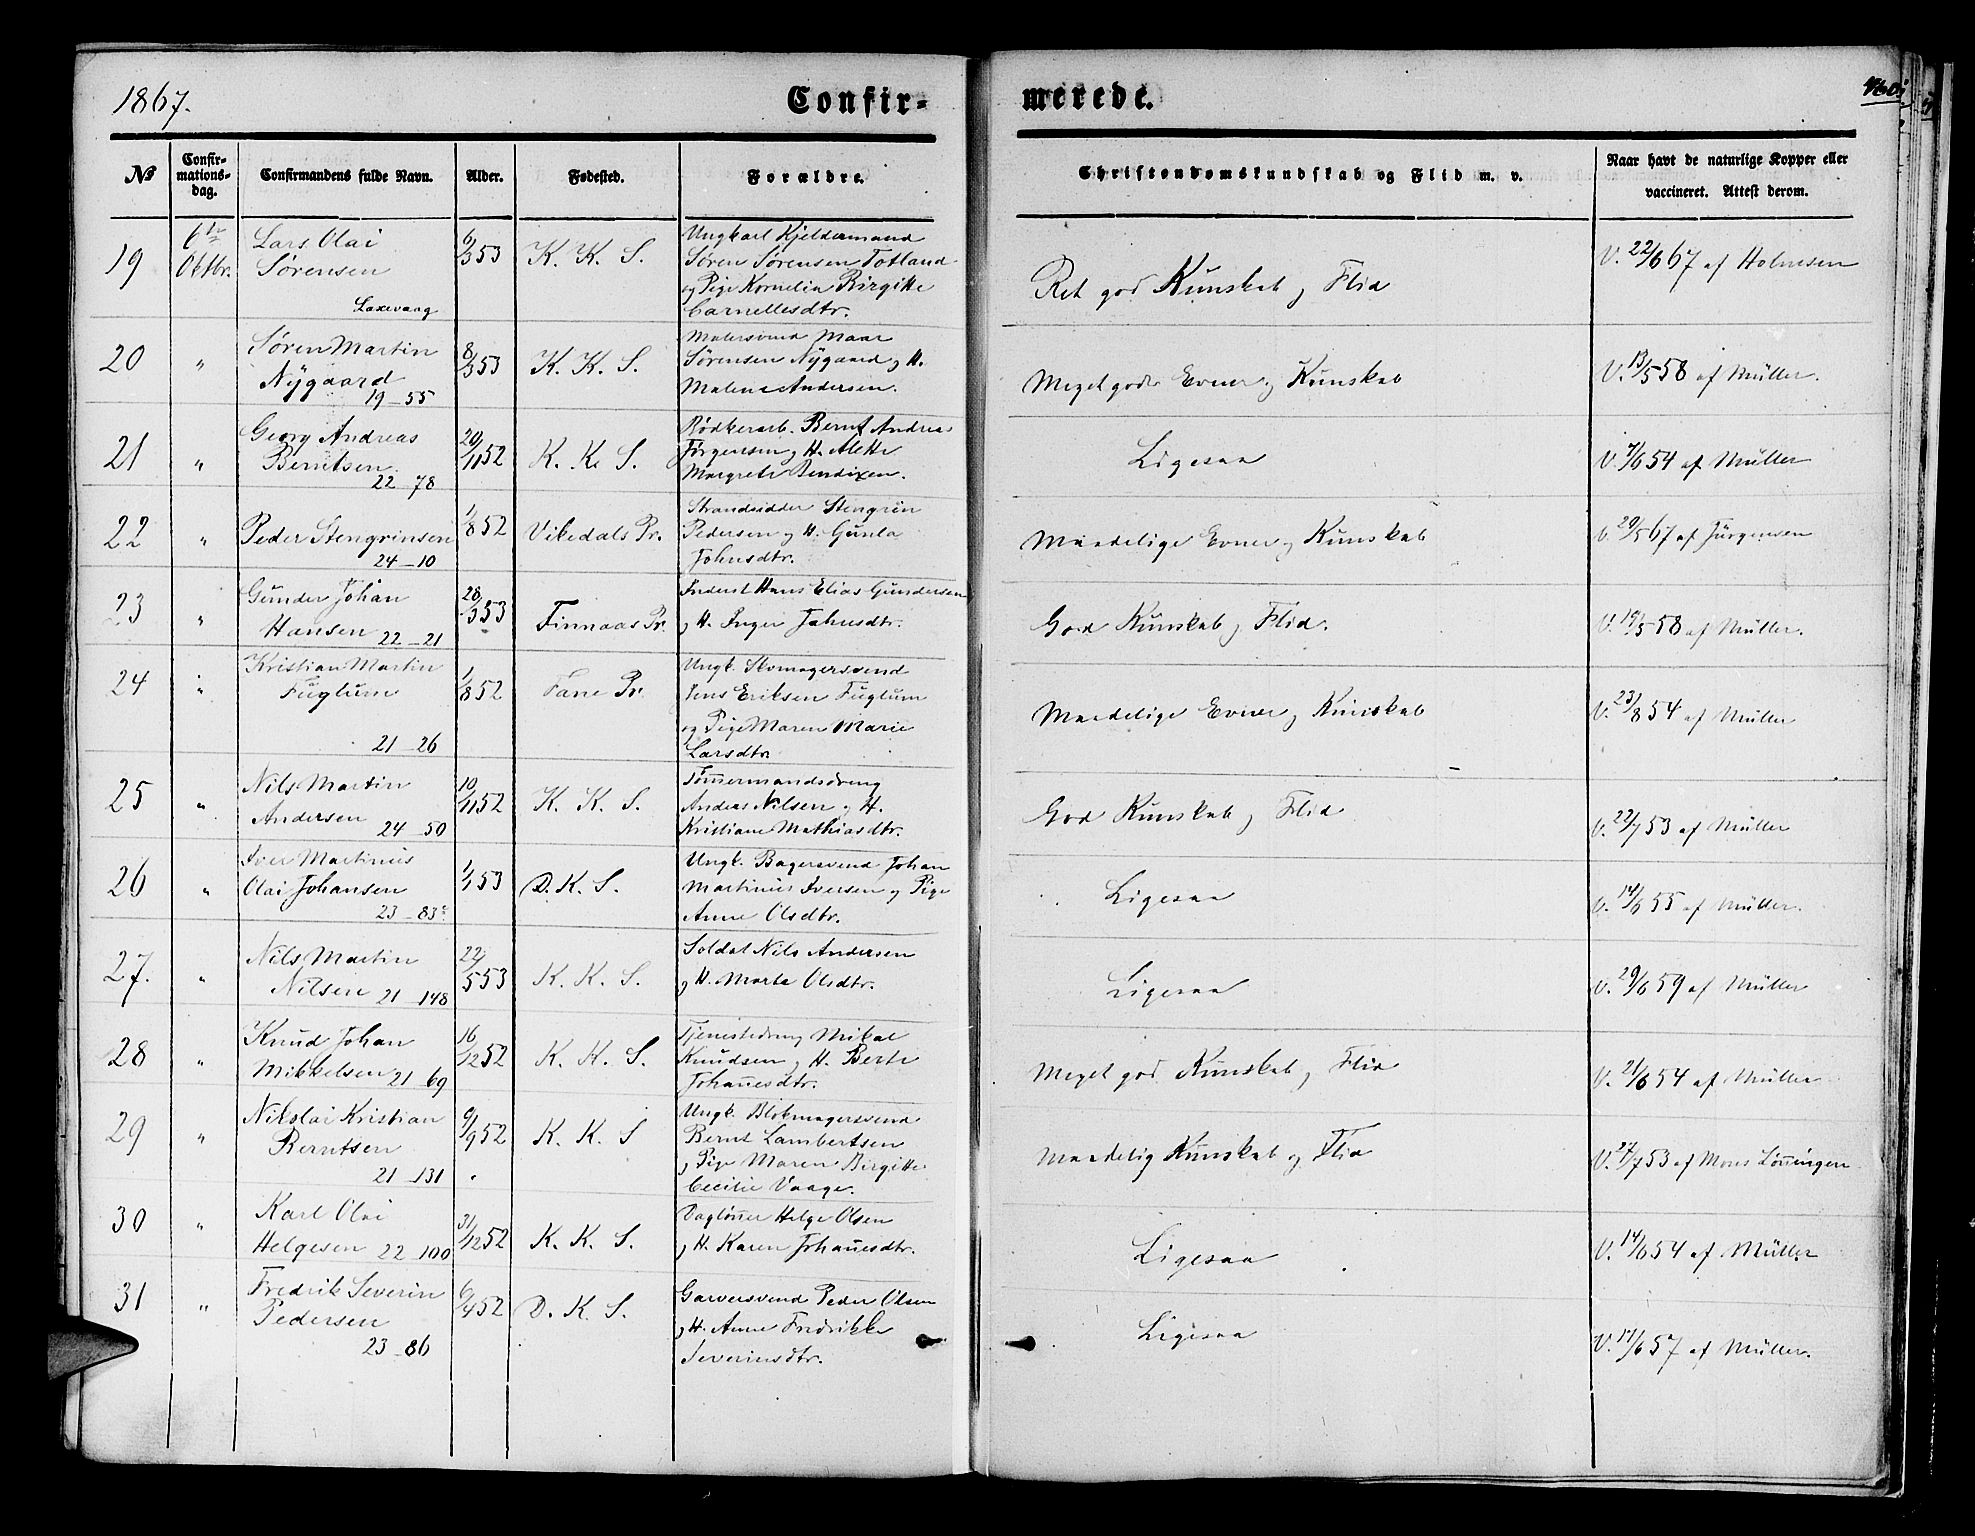 1867.
Confir-
merede.
№
Confir-
mations-
dag.
Confirmandens fulde Navn.
Alder.
Fødested.
Forældre.
Christendomskundskab og Flid m. v.
Naar havt de naturlige Kopper eller
vaccineret. Attest derom.
19
6te
Oktbr.
Lars Olai
Sørensen
Laxevaag
6/3 53
K. K. S.
Ungkarl Kjeldermand
Søren Sørensen Totland
og Pige Kornelia Birgitte
Carnellesdtr.
Ret god Kunskab og Flid
V. 22/6 67 af Holmesen
20
"
Søren Martin
Nygaard
19_55
8/3 53
K. K. S.
Malersvend Maar
Sørensen Nygaard og H.
Malene Andersen.
Meget gode Evner og Kunskab
V. 13/5 58 af Müller.
21
"
Georg Andreas
Berntsen
22_78
20/11 52
K. K. S.
Bødkerarb. Bernt Andreas
Jørgensen og H. Alette
Margrete Bendixen.
Ligesaa
V. 7/6 54 af Müller
22
"
Peder Stengrimsen
24_10
1/8 52
Vikedals Pr.
Strandsidder Stengrim
Pedersen og H. Gunla
Johnsdtr.
Maadelige Evner og Kunskab
V. 29/5 67 af Jürgensen
23
"
Gunder Johan
Hansen 22_21
28/3 53
Finnaas Pr.
Inderst Hans Elias Gundersen
og H. Inger Jahnsdtr.
God Kunskab og Flid.
V. 19/5 58 af Müller.
24
"
Kristian Martin
Fuglum
21_26
1/8 52
Fane Pr.
Ungk. Skomagersvend
Jens Eriksen Fuglum
og Pige Maren Marie
Larsdtr.
Maadelige Evner og Kunskab
V. 23/8 54 af Müller
25
"
Nils Martin
Andersen 24_50
10/11 52
K. K. S.
Tømmermandsdreng
Andreas Nilsen og H.
Kristiane Mathiasdtr.
God Kunskab og Flid
V. 22/7 53 af Müller
26
"
Iver Martinius
Olai Johansen
23_83
1/1 53
D. K. S.
Ungk. Bagersvend Johan
Martinius Iversen og Pige
Anne Olsdtr.
Ligesaa
V. 14/6 55 af Müller.
27.
"
Nils Martin
Nilsen 21_148
22/5 53
K. K. S.
Soldat Nils Andersen
og H. Marta Olsdtr.
Ligesaa
V. 29/6 59 af Müller
28
"
Knud Johan
Mikkelsen 21_69
16/12 52
K. K. S.
Tjenestedreng Mikal
Knudsen og H. Berte
Johannesdtr.
Meget god Kunskab og Flid
V. 21/6 54 af Müller
29
"
Nikolai Kristian
Berntsen
21_131
9/9 52
K. K. S
Ungk. Blokmagersvend
Bernt Lambertsen
og Pige Maren Birgitte
Cecilie Vaage.
Maadelig Kunskab og Flid
V. 27/7 53 af Mons Lønningen
30
"
Karl Olai
Helgesen 22_100
31/12 52
K. K. S.
Daglønner Helge Olsen
og H. Karen Johannesdtr.
Ligesaa
V. 14/6 54 af Müller
31
"
Fredrik Severin
Pedersen
23_86
6/4 52
D. K. S.
Garversvend Peder Olsen
og H. Anne Fredrikke
Severinsdtr.
Ligesaa
V. 17/6 57 af Müller.